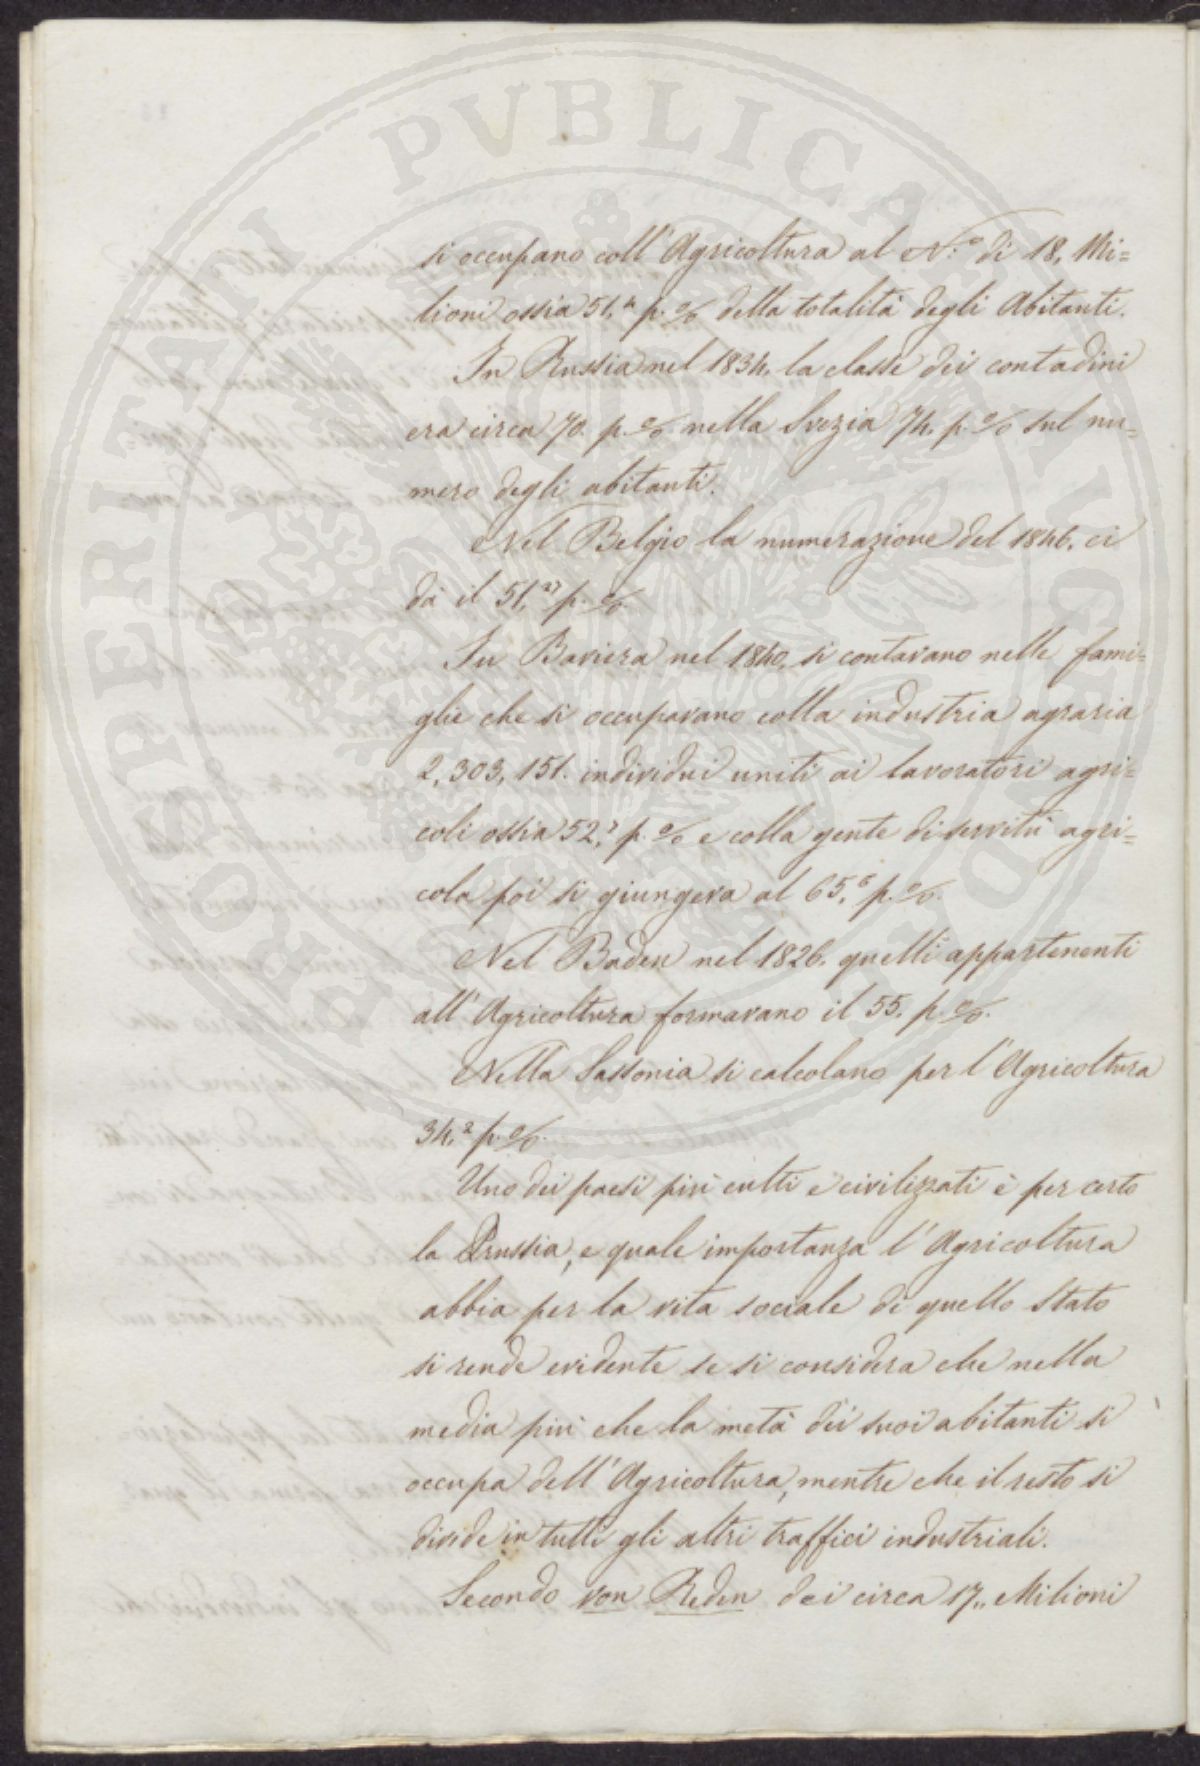 PROSPERITATI PVBLICAE AVGENDAE
si occupano coll' Agricoltura al N.º di 18. Mi=
lioni ossia 51,4 p. % della totalità degli Abitanti.
In Russia nel 1834. la classe dei contadini
era circa 70. p. % nella Svezia 74. p. % sul nu=
mero degli abitanti.
Nel Belgio la numerazione del 1846. ci
dà il 51,27 p. %.
In Baviera nel 1840, si contavano nelle fami=
glie che si occupavano colla industria agraria
2,303,151. individui uniti ai lavoratori agri=
coli ossia 52,7 p. % e colla gente di servitù agri=
cola poi si giungeva al 65,6 p. %.
Nel Baden nel 1826. quelli appartenenti
all' Agricoltura formavano il 55. p. %.
Nella Sassonia si calcolano per l'Agricoltura
34,2 p. %.
Uno dei paesi più culti e civilizzati è per certo
la Prussia, e quale importanza l'Agricoltura
abbia per la vita sociale di quello Stato
si rende evidente se si considera che nella
media più che la metà dei suoi abitanti si
occupa dell' Agricoltura, mentre che il resto si
divide in tutti gli altri traffici industriali.
Secondo von Reden dei circa 17,, Milioni